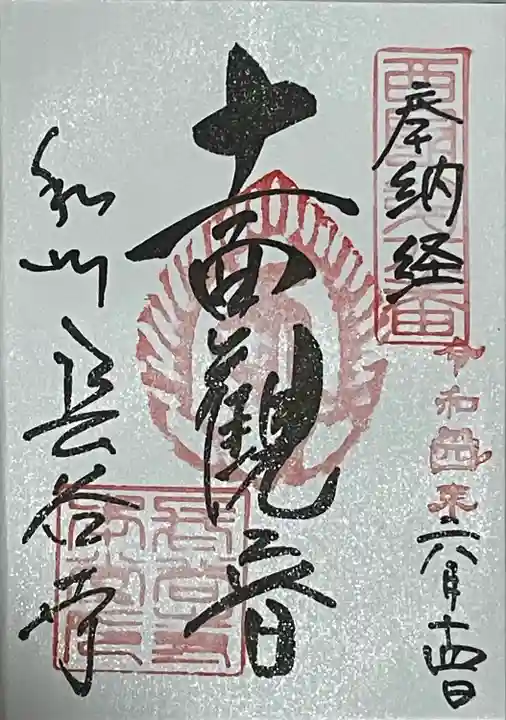 奉納経
令和四年六月十四日
十一面観音
和州長谷寺